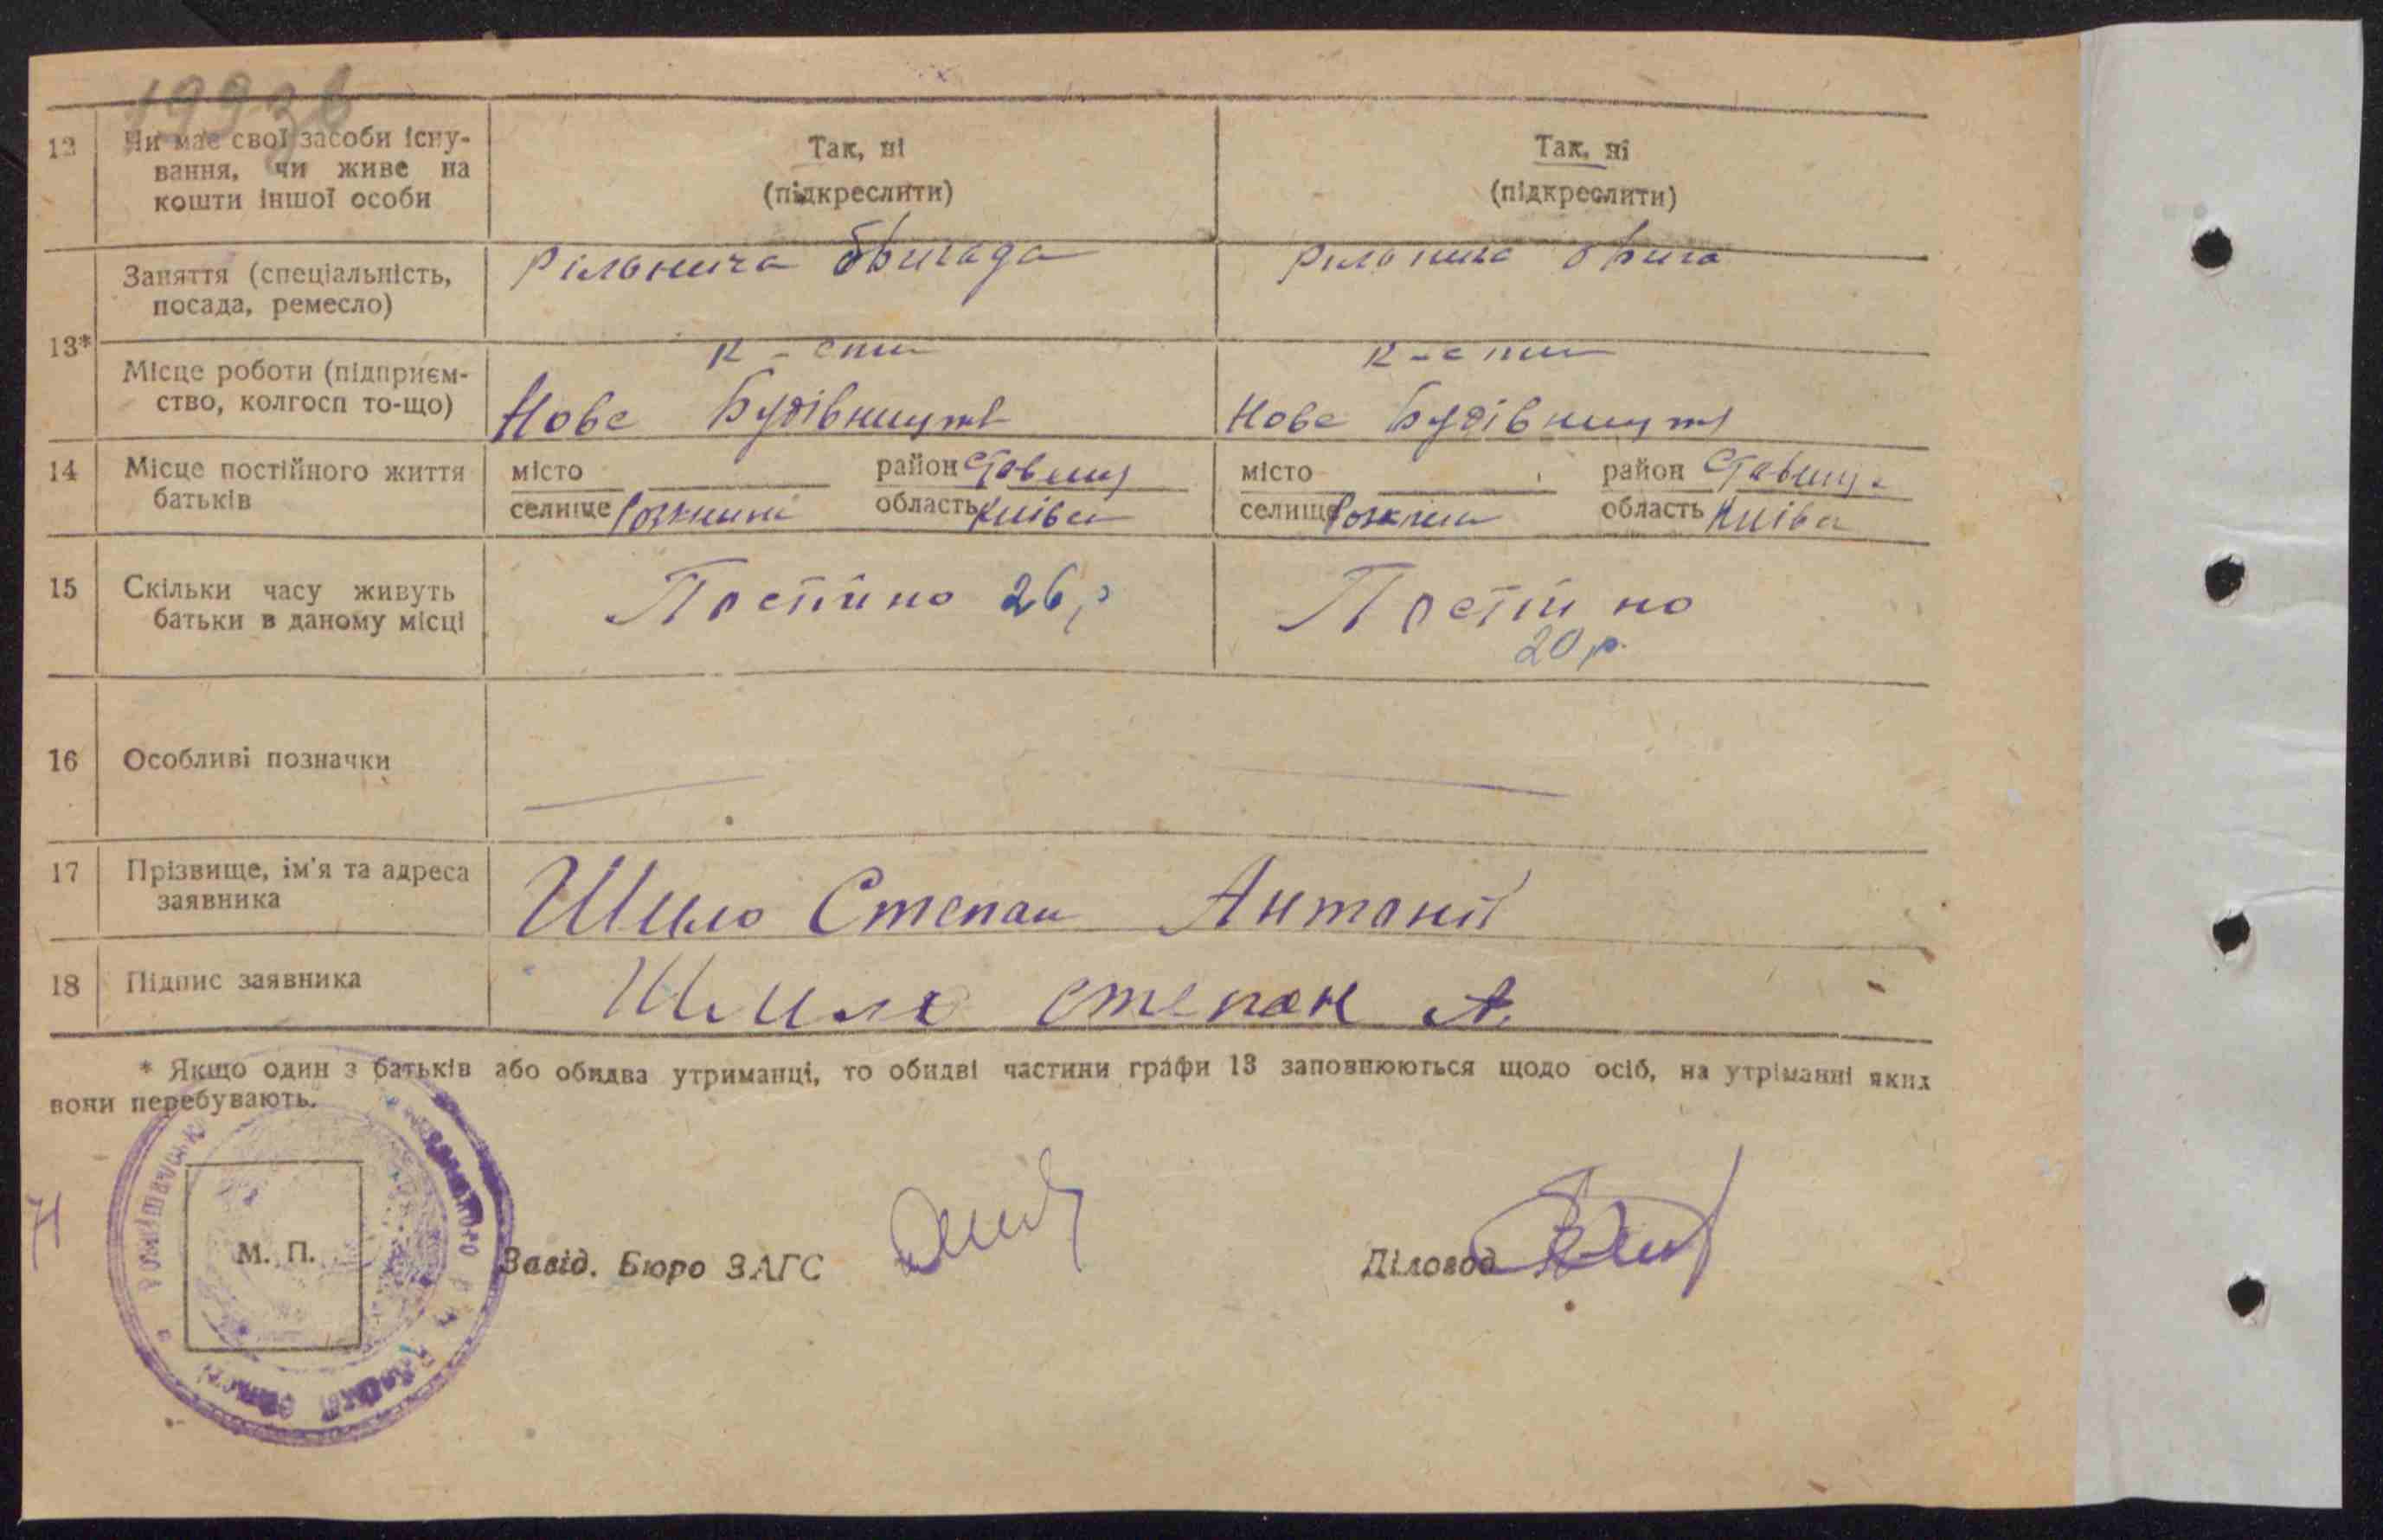 12 Чи має свої засоби існу-
вання, чи живе на
кошти іншої особи
Так, ні
(підкреслити)
Так, ні
(підкреслити)
13*
Заняття (спеціальність,
посада, ремесло)
Рільнича бригада
Рільнича брига
Місце роботи (підприєм-
ство, колгосп то-що)
к-сти
Нове Будівницт
к-сти
Нове Будівницт
14 Місце постійного життя
батьків
місто район Ставищ
селище область Київс
місто район Ставище
селище область Київс
15 Скільки часу живуть
батьки в даному місці
Постійно 26 р
Постійно
20 р.
16 Особливі позначки
17 Прізвище, ім'я та адреса
заявника
Шило Степан Антоній
18 Підпис заявника
Шило степан А.
* Якщо один з батьків або обидва утриманці, то обидві частини графи 13 заповнюються щодо осіб, на утріманні яких
вони перебувають.
М. П.
Завід. Бюро ЗАГС
Діловод